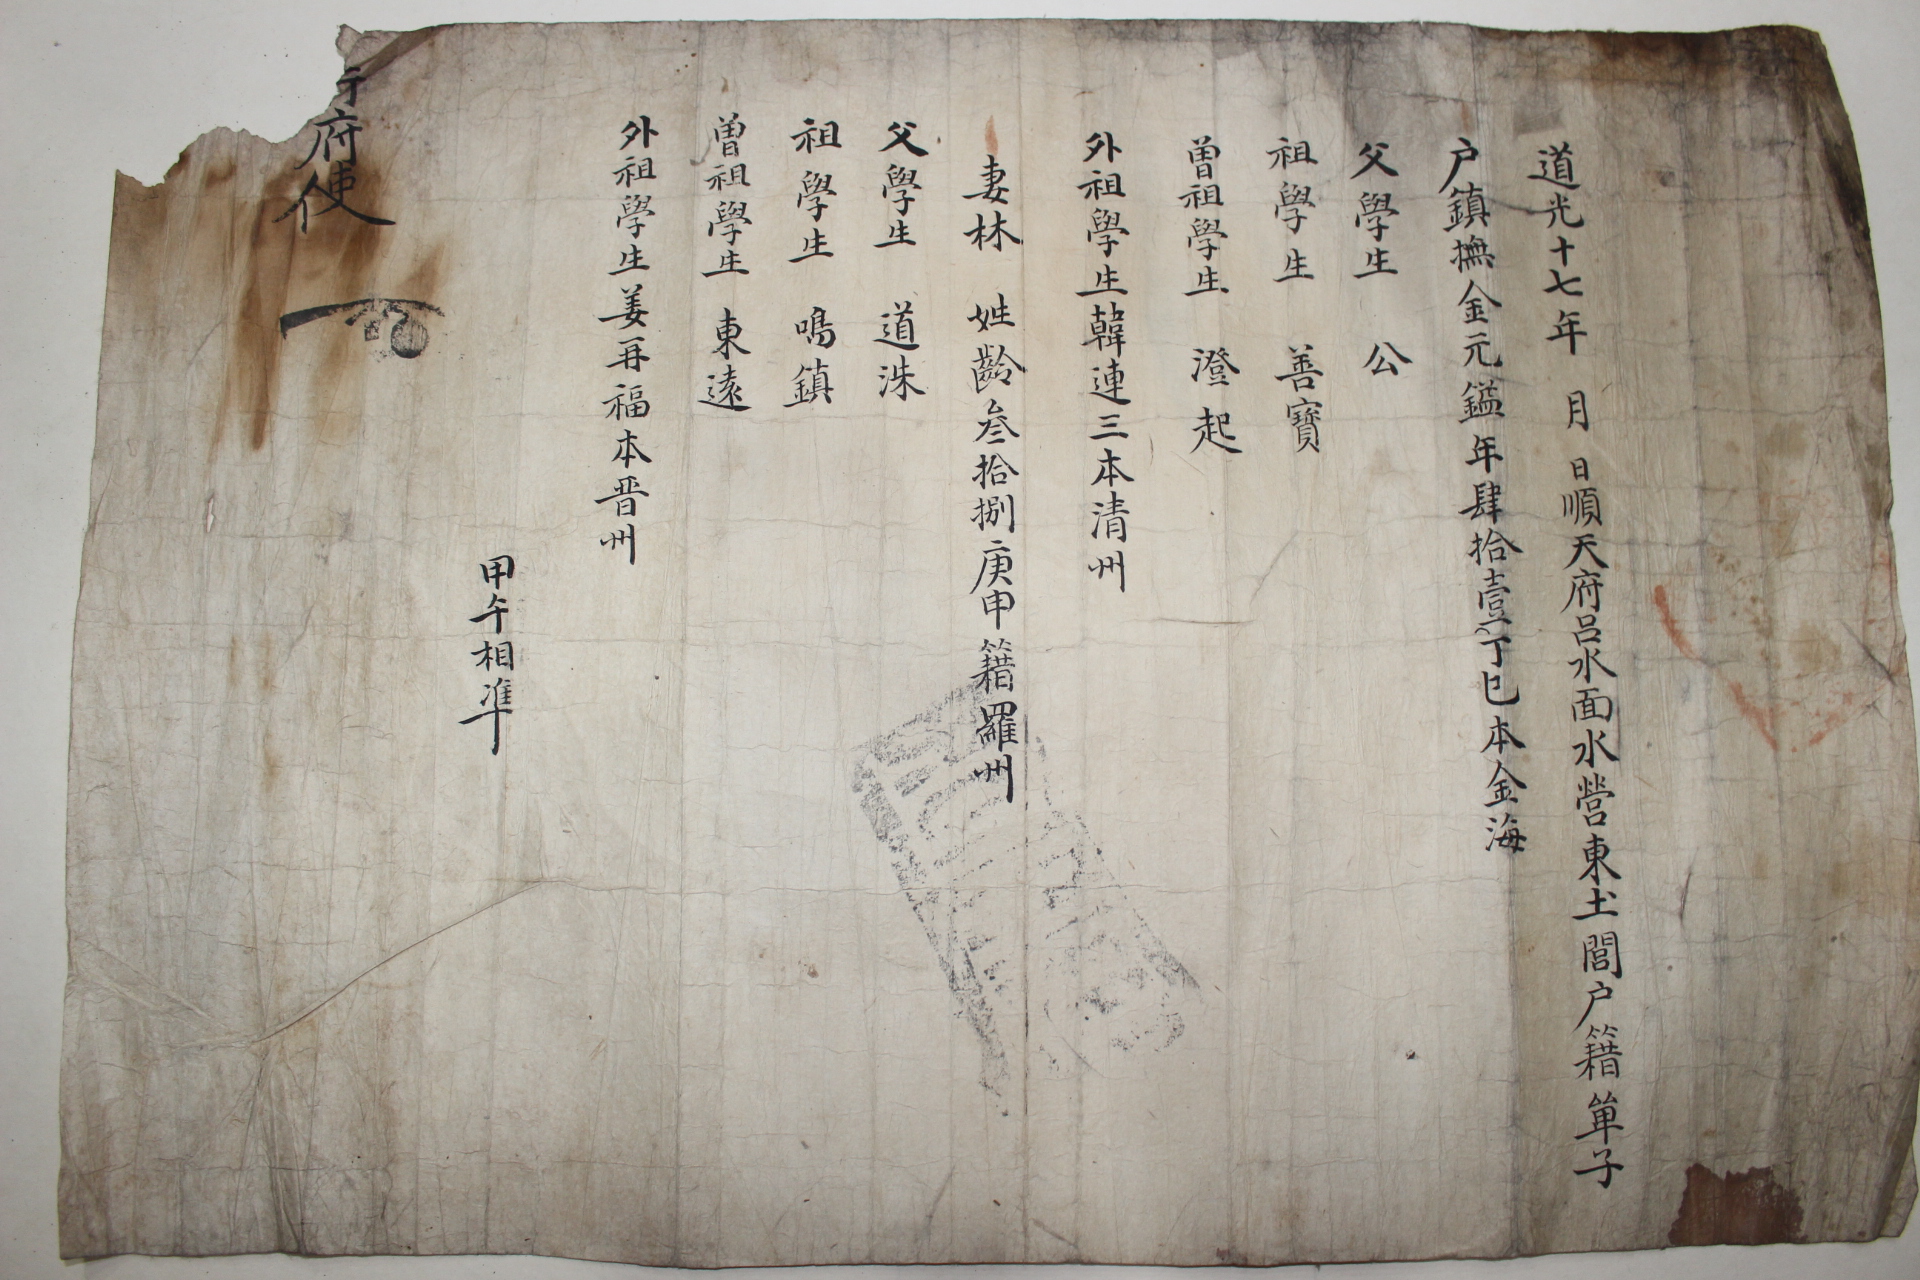 道光十七年 月 日順天府呂水面水營東土閭户籍單子
户鎮撫金元鎰年肆拾壹丁巳本金海
父學生 公
祖學生 善寶
曾祖學生 澄起
外祖學生韓連三本清州
妻林 姓齡叁拾捌庚申籍羅州
父學生 道洙
祖學生 鳴鎮
曾祖學生 東遠
外祖學生姜再福本晋州
甲午相準
行府使